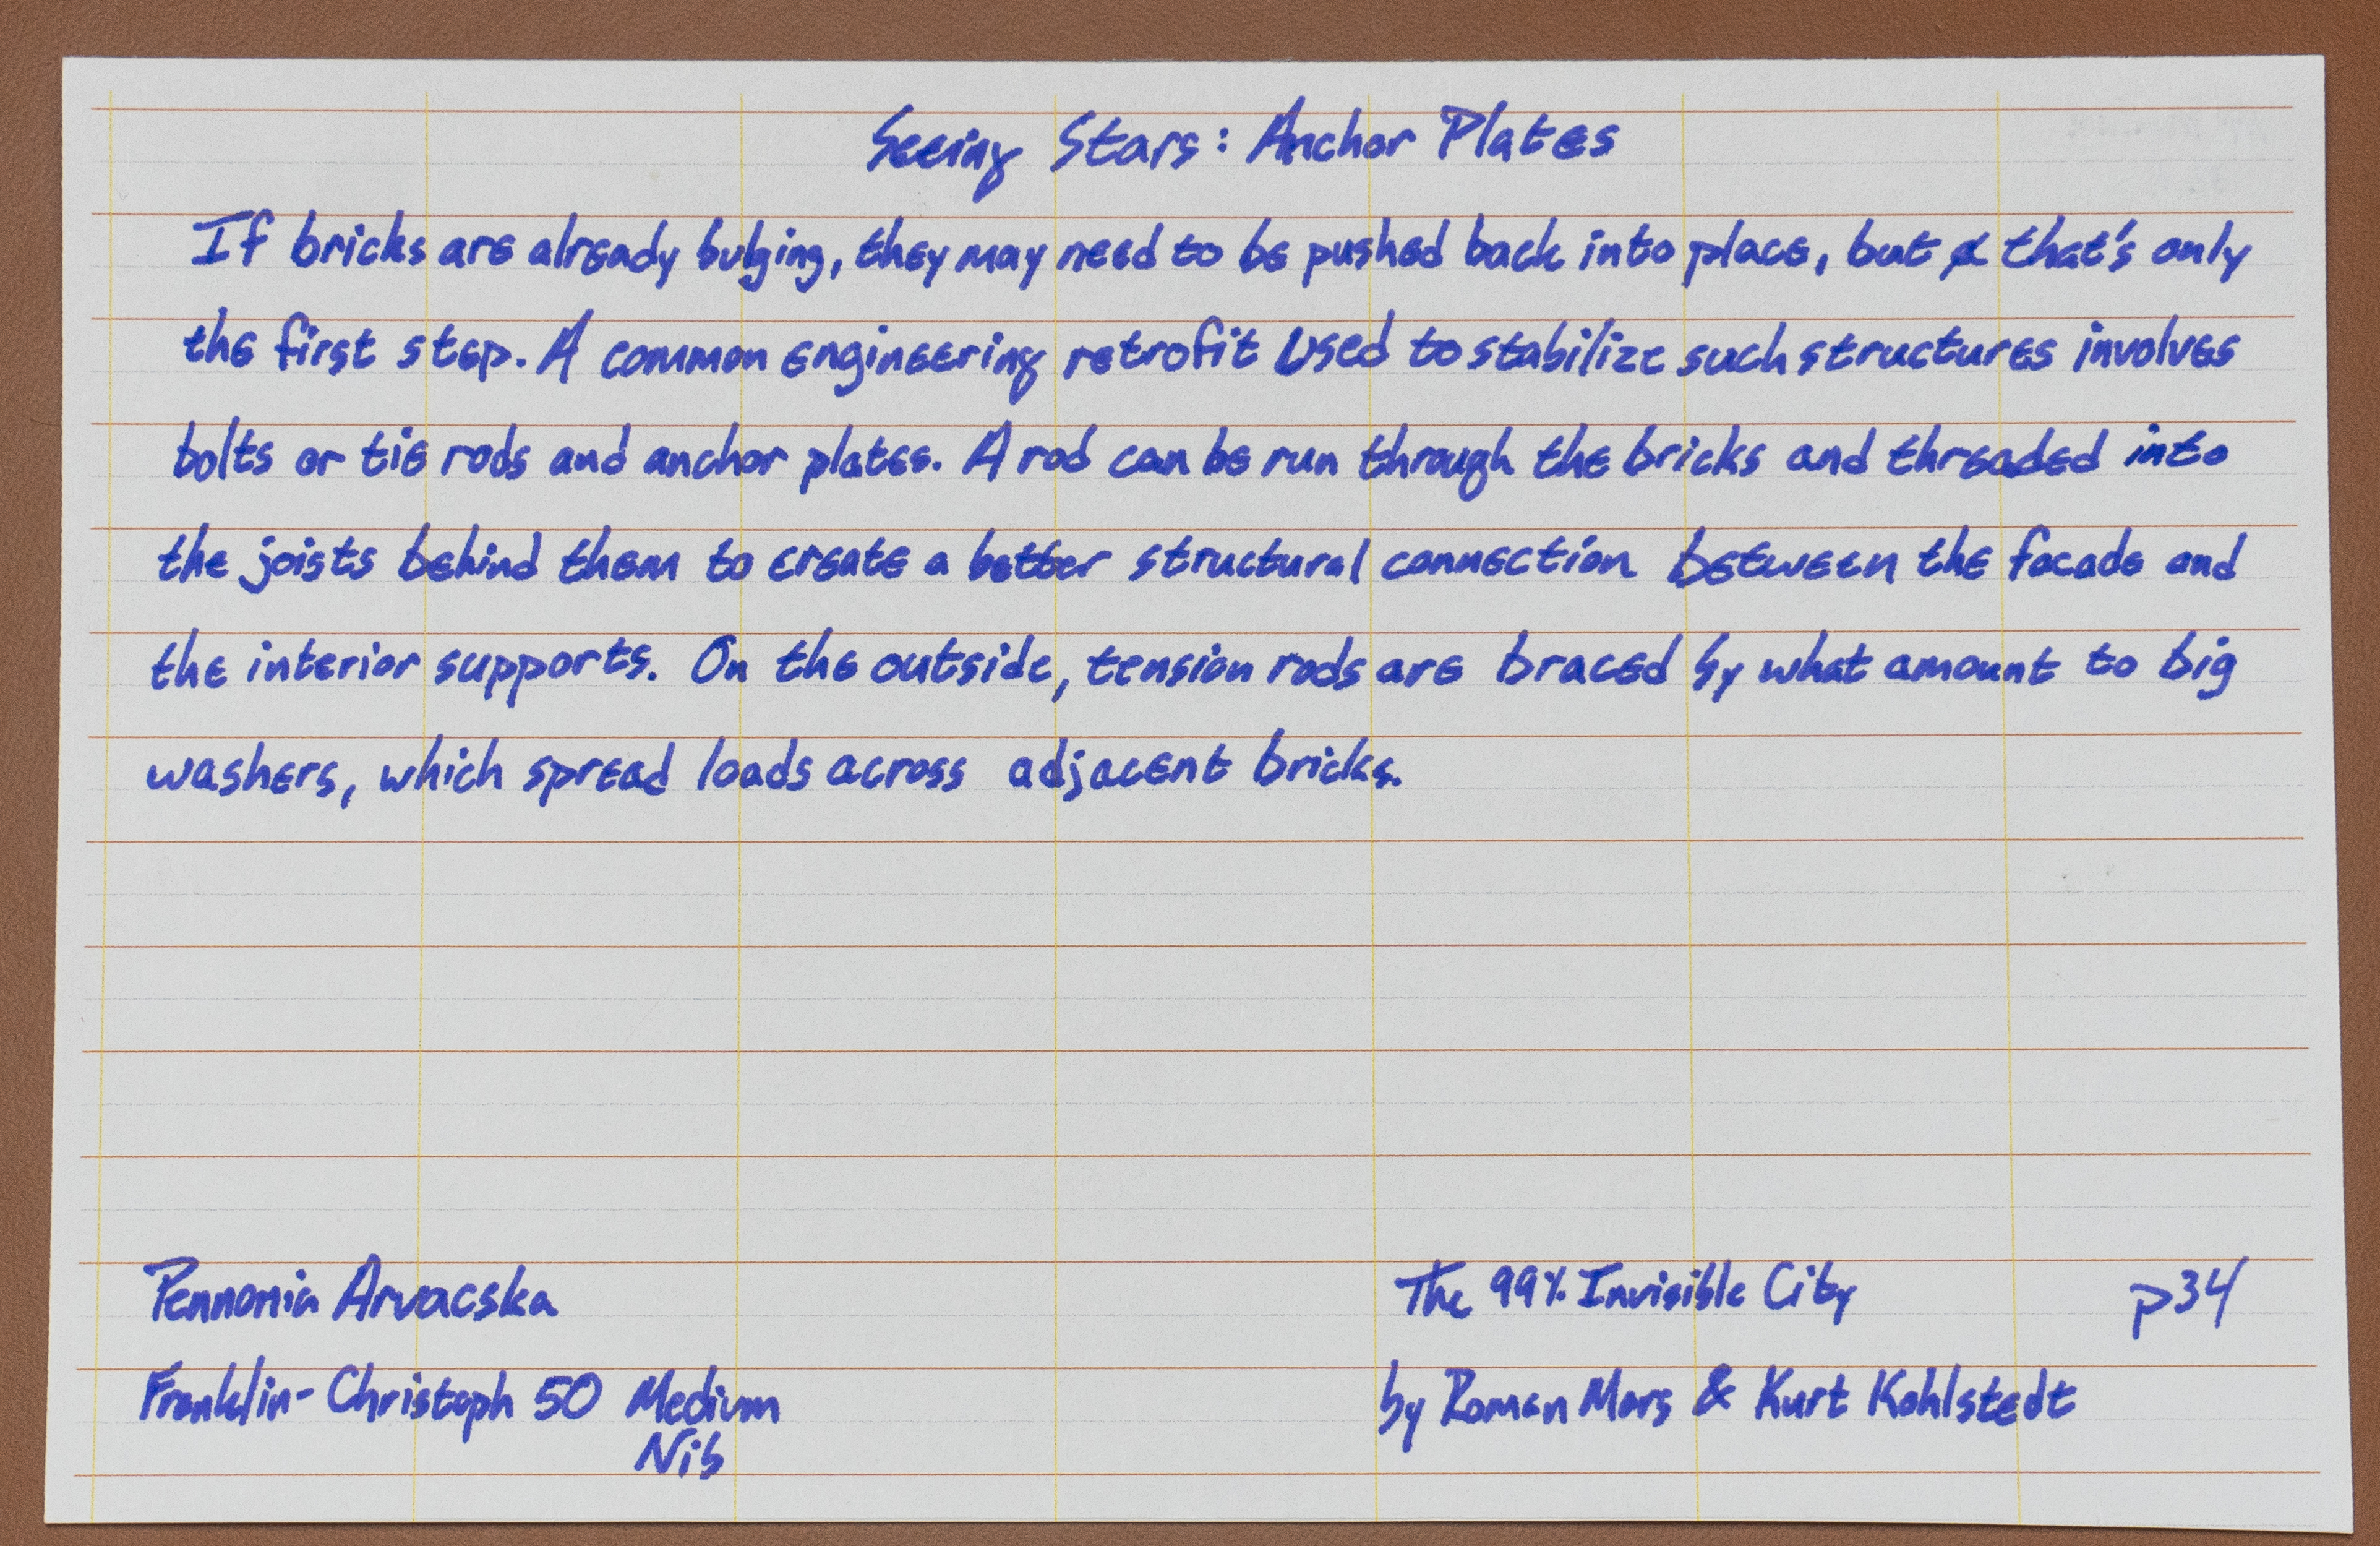 Seeing Stars: Anchor Plates
If bricks are already bulging, they may need to be pushed back into place, but that's only
the first step. A common engineering retrofit used to stabilize such structures involves
bolts or tie rods and anchor plates. A rod can be run through the bricks and threaded into
the joists behind them to create a better structural connection between the facade and
the interior supports. On the outside, tension rods are braced by what amount to big
washers, which spread loads across adjacent bricks.
Pennonia Arvacska
Franklin-Christoph 50 Medium
Nib
The 99% Invisible City p34
by Roman Mars & Kurt Kohlstedt